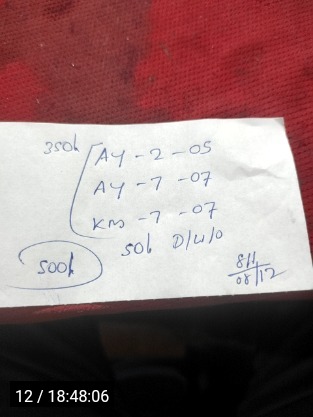 350/-
AY - 2 - 05
AY - 7 - 07
KM - 7 - 07
50/- D/W/O
500/-
08/12
12 / 18:48:06